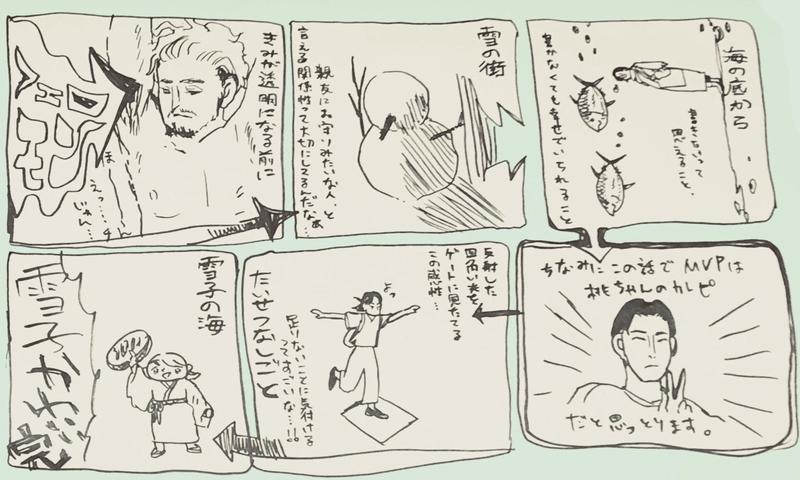 きみが透明になる前に
じゃん…
雪の街
親友にお守りみたいな人、と
言える関係性って大切にしてるんだなぁ…
海の底から
書きたいって
思えること、
書かなくても幸せでいられること
ちなみにこの話でMVPは
桃ちゃんのカレピ
だと思っとります。
反射した
四角い光を
ゲートに見たてる
この感性…
よっ
足りないことに気付ける
ってすごいな…!!
たいせつなしごと
雪子の海
雪子かわ